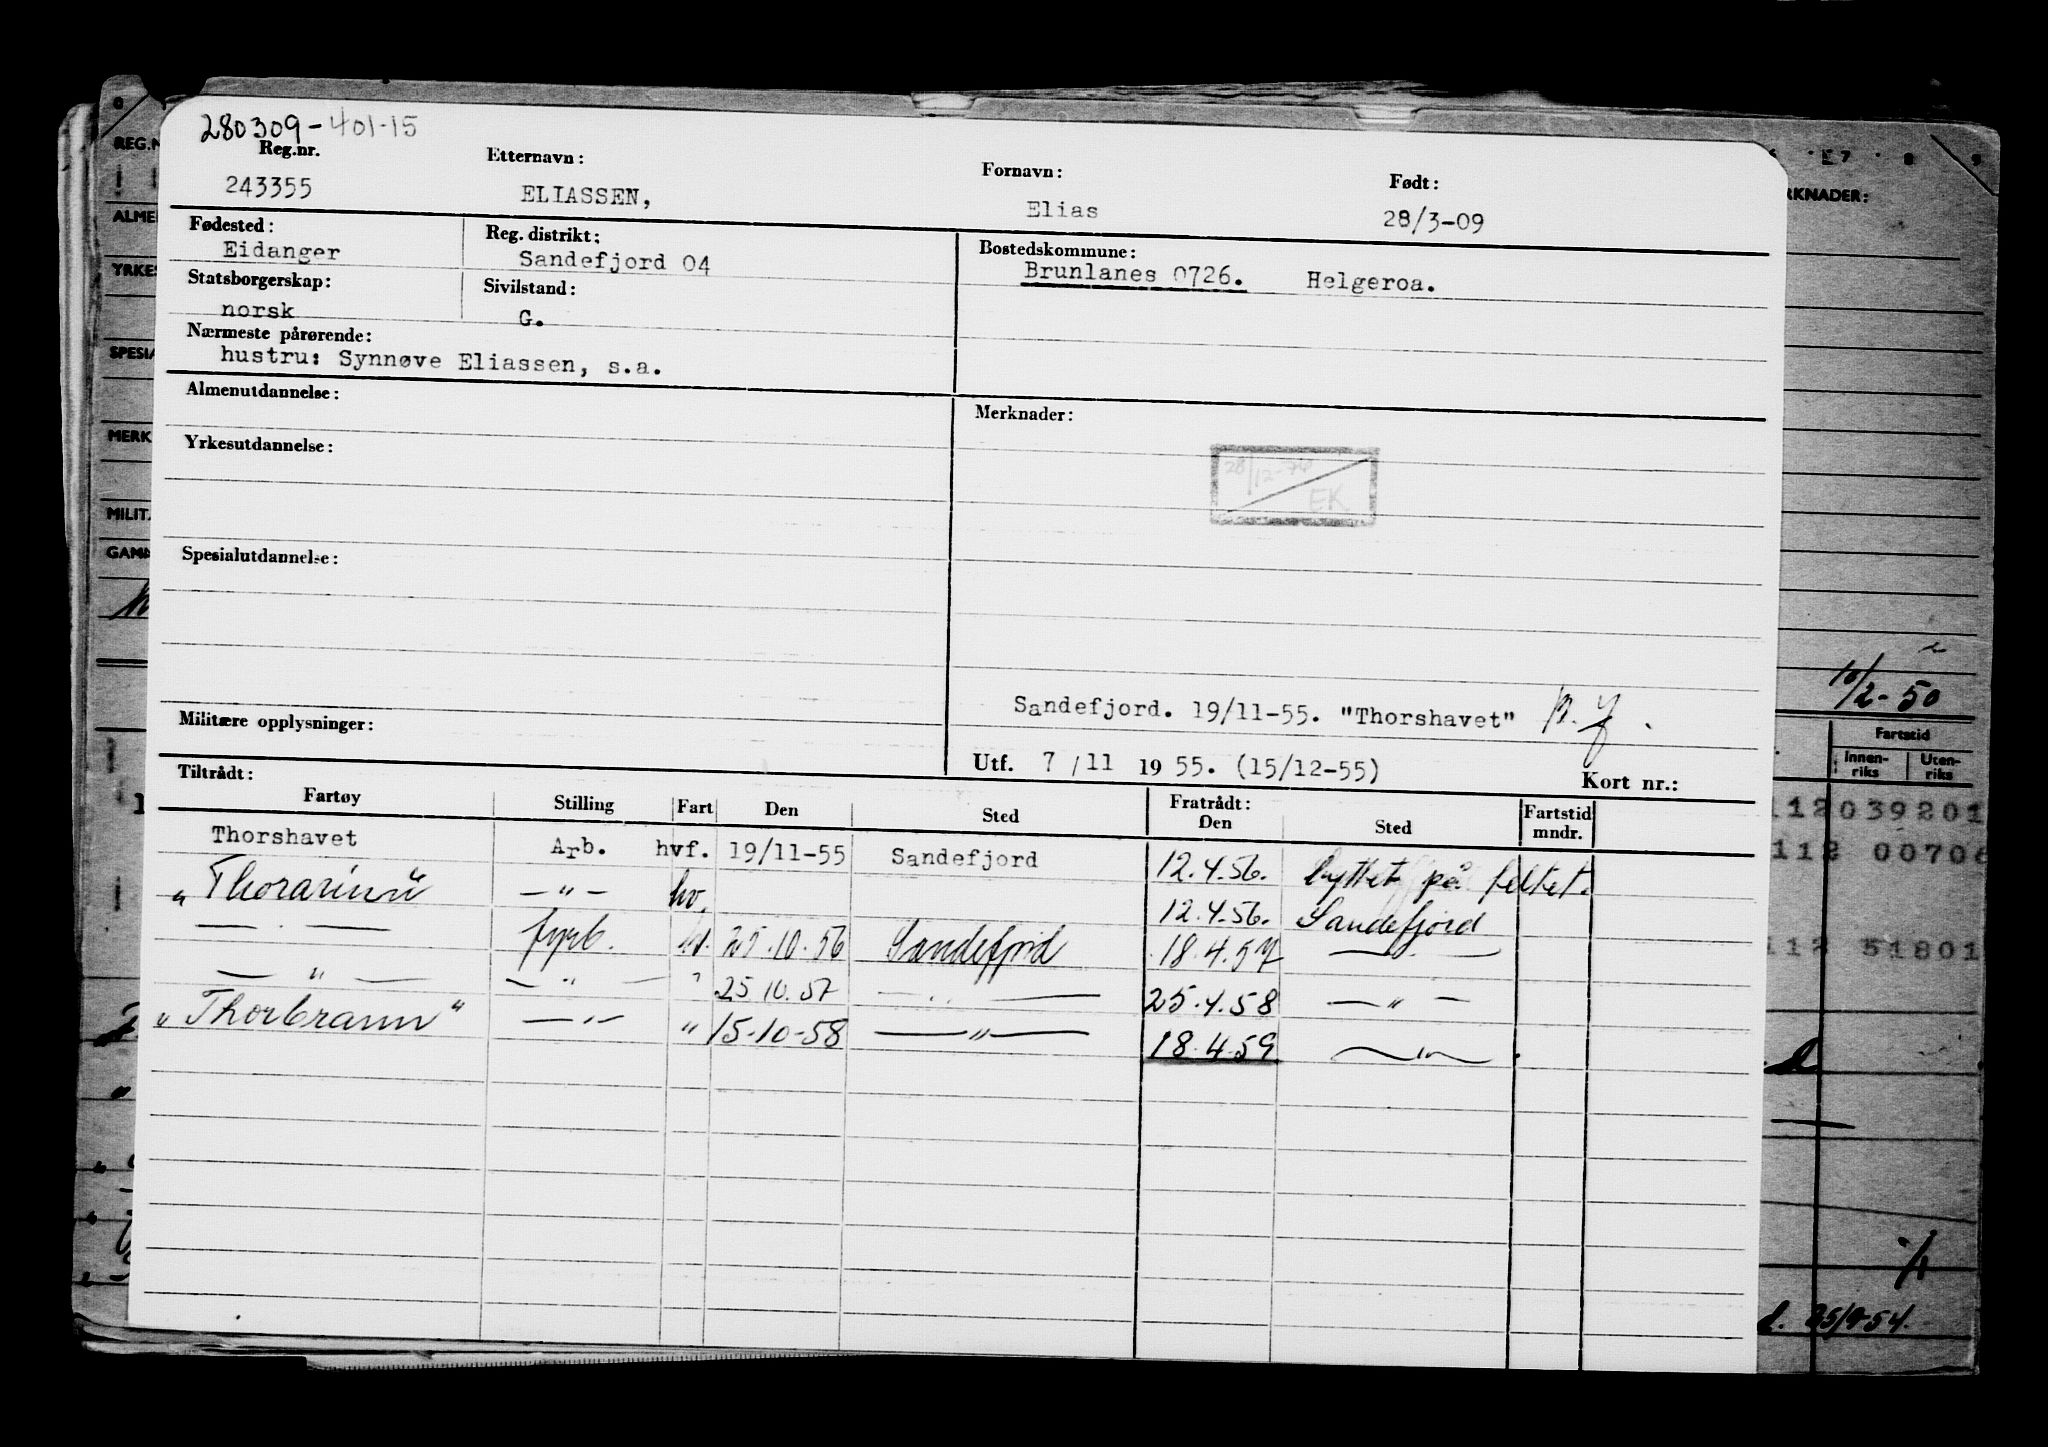 280309-401-15
Reg.nr. Etternavn: Fornavn: Født:
243355 ELIASSEN, Elias 28/3-09
Fødested: Reg. distrikt: Bostedskommune:
Eidanger Sandefjord 04 Brunlanes 0726. Helgeroa.
Statsborgerskap: Sivilstand:
norsk G.
Nærmeste pårørende:
hustru: Synnøve Eliassen, s.a.
Almenutdannelse: Merknader:
Yrkesutdannelse:
28/12-76
EK
Spesialutdannelse:
Sandefjord. 19/11-55. "Thorshavet"
Militære opplysninger:
Utf. 7/11 1955. (15/12-55) Kort nr.:
Tiltrådt: Fratrådt:
Fartøy Stilling Fart Den Sted Den Sted Fartstid mndr.
Thorshavet Arb. hvf. 19/11-55 Sandefjord 12.4.56. byttet på feltet.
"Thorarinn" —"— hv. 12.4.56. Sandefjord
— . — fyrb. hv. 25.10.56 Sandefjord 18.4.57 — . —
— " — — " — " 25.10.57 — " — 25.4.58 — " —
"Thorbrann" — " — " 15-10-58 — " — 18.4.59 — " —
REG.N
ALME
YRKES
SPESIA
MERK
MILIT.
GAMM
RKNADER:
7 8 9
10/2-50
Fartstid
Innen-riks Uten-riks
112039201
112 00706
112 51801
25/9-54.